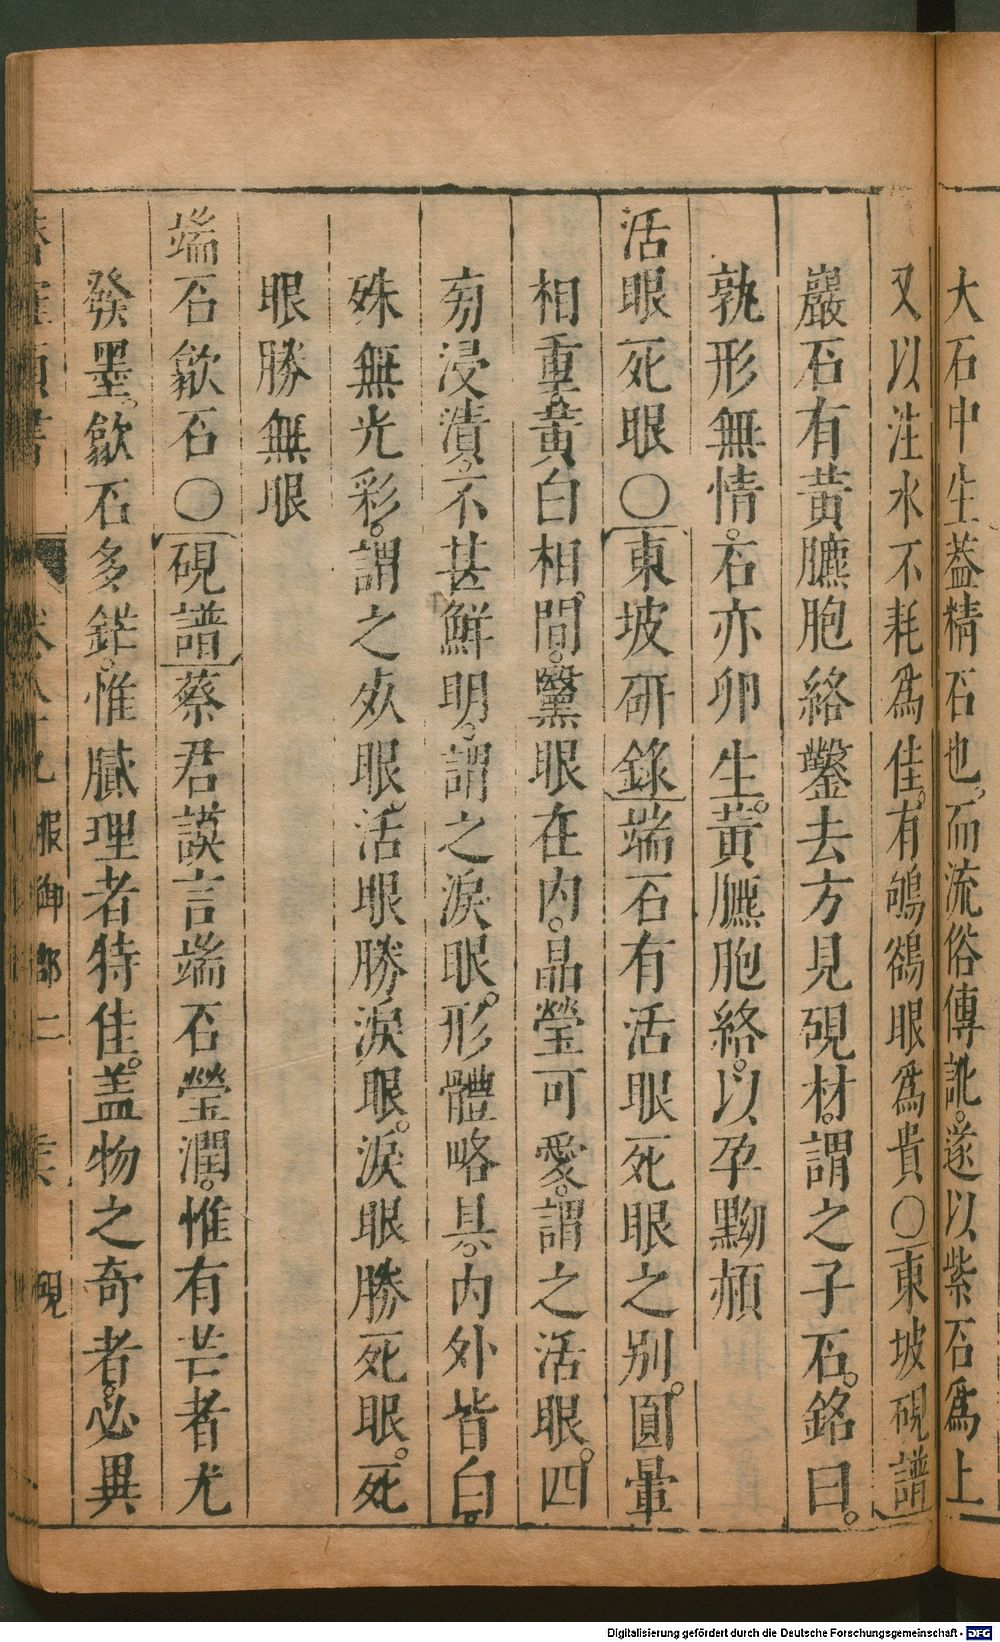 大石中生蓋精石也。而流俗傳訛。遂以紫石爲上
又以注水不耗爲佳。有鴝鵒眼爲貴○東坡硯譜
巖石有黃臕胞絡鑿去方見硯材。謂之子石。銘曰。
孰形無情。石亦卵生。黃臕胞絡。以孕黝頳
活眼死眼○東坡研錄端石有活眼死眼之别。圓暈
相重黃白相。間。黳眼在内。晶瑩可愛。謂之活眼。四
旁浸漬。不甚鮮明。謂之淚眼。形體略具。内外皆白。
殊無光彩。謂之死眼。活眼勝淚眼。淚眼勝死眼。死
眼勝無眼
端石歙石○硯譜蔡君謨言端石瑩潤。惟有芒者尤
發墨。歙石多鋩。惟膩理者特佳。蓋物之奇者。必異
服御部二 硯
Digitalisierung gefördert durch die Deutsche Forschungsgemeinschaft - DFG